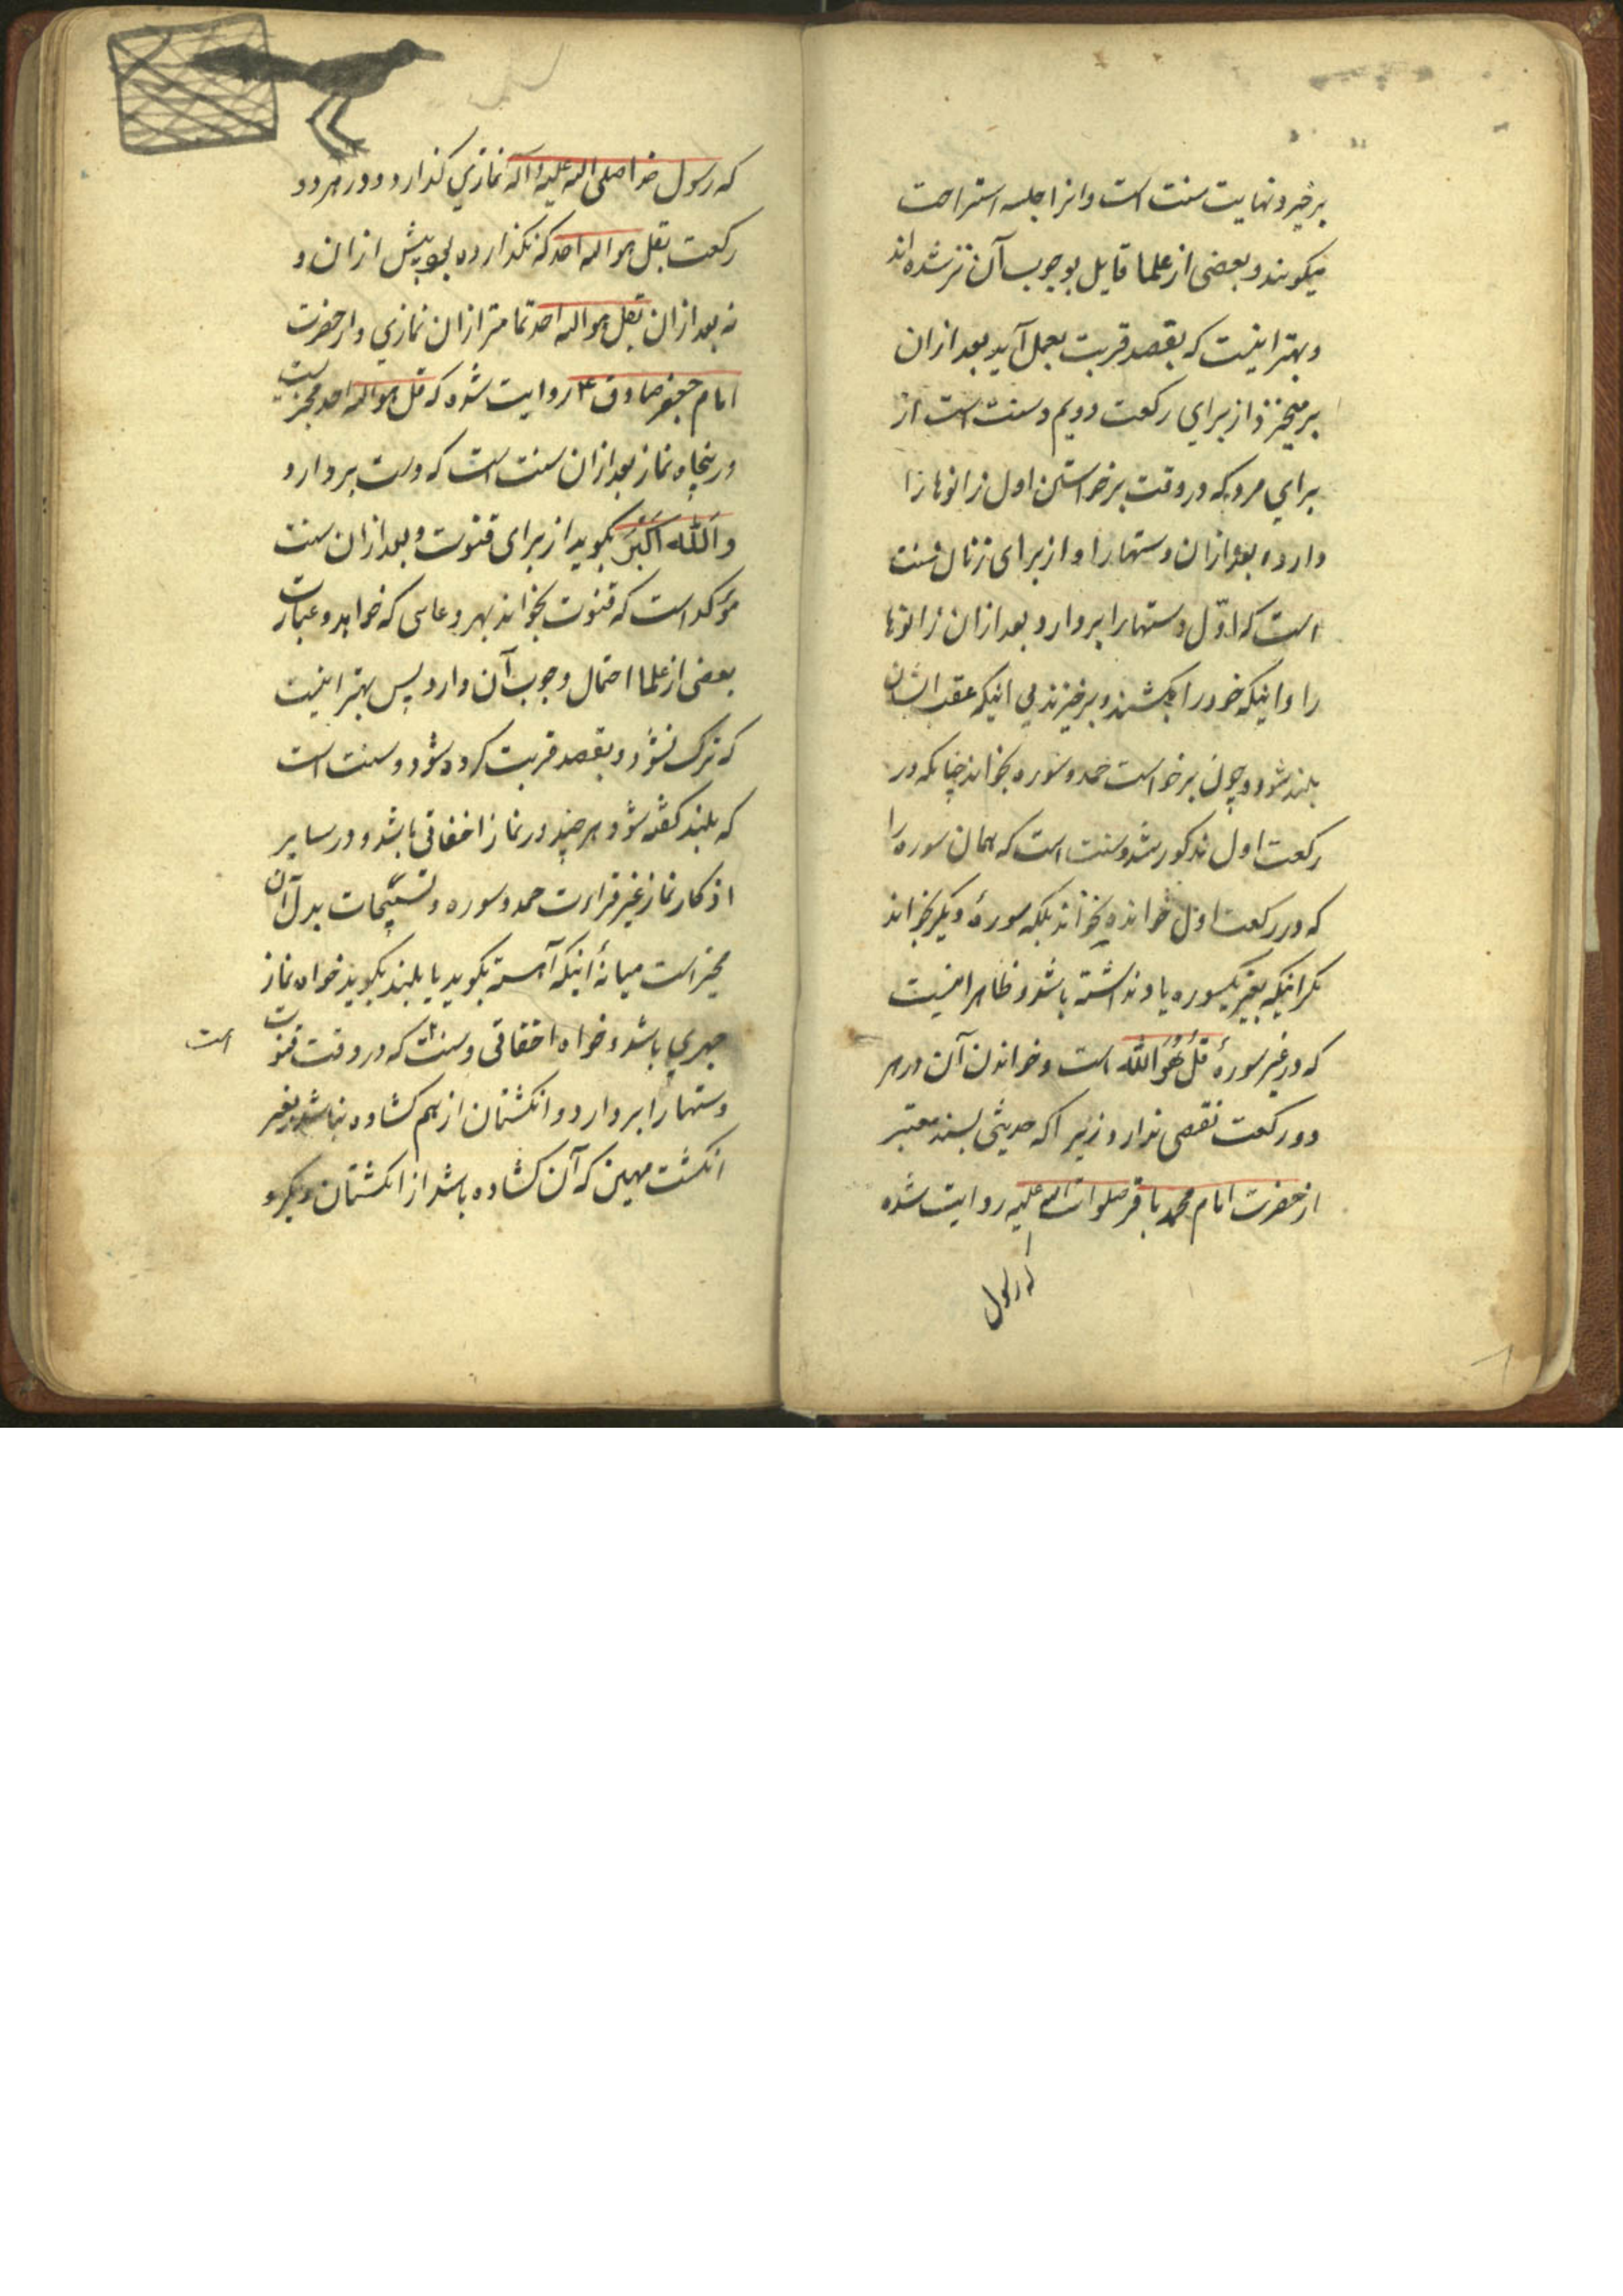 برخیزد و نهایت سنت است و انرا جلسه استراحت
میکویند و بعضی از علما قایل بوجوب آن نیز شده اند
و بهتر اینست که بقصد قربت بعمل آید بعد ازان
برمیخیزد از برای رکعت دویم و سنت است از
برای مرد که در وقت برخواستن اول زانوها را
بردارد و بعد ازان دستها را و از برای زنان سنت
است که اوّل دستها را بردارد و بعد ازان زانوها
را و اینکه خود را بکشند و برخیزند بی اینکه عقب ایشان
بلند شود و چون برخواست حمد و سوره بخواند چنانکه در
رکعت اول مذکور شد و سنت است که همان سوره را
که در رکعت اول خوانده نخواند بلکه سورهٔ دیگر بخواند
مگر اینکه بغیر یکسوره یاد نداشته باشد و ظاهر اینست
که در غیر سورهٔ قُلْ هُوَ اللّٰه است و خواندن آن در هر
دو رکعت نقصی ندارد زیرا که حدیثی بسند معتبر
از حضرت امام محمد باقر صلوات الله علیه روایت شده
که رسول
که رسول خدا صلی الله علیه و آله نمازی کذارد و در هر دو
رکعت بقل هو الله احد که نکذارده بود پیش ازان و
نه بعد ازان بقل هو الله احد تمامتر ازان نمازی و از حضرت
امام جعفر صادق ع روایت شده که قل هو الله احد مجزیست
در پنجاه نماز بعد ازان سنت است که دست بردارد
و اَللّٰه اَکْبَرْ بکوید از برای قنوت و بعد ازان سنت
مؤکد است که قنوت بخواند بهر دعایی که خواهد و عبارت
بعضی از علما احتمال وجوب آن دارد پس بهتر اینست
که ترک نشود و بقصد قربت کرده شود و سنت است
که بلند کفته شود هر چند در نماز اخفاتی باشد و در سایر
اذکار نماز غیر قراءت حمد و سوره و تسبیحات بدل آن
مخیر است میانهٔ اینکه آهسته بکوید یا بلند بکوید خواه نماز
جهری باشد و خواه اخفاتی و سنت که در وقت قنوت
است
دستها را بردارد و انکشتان از هم کشاده نباشد بغیر
انکشت مهین که آن کشاده باشد از انکشتان دیکر و